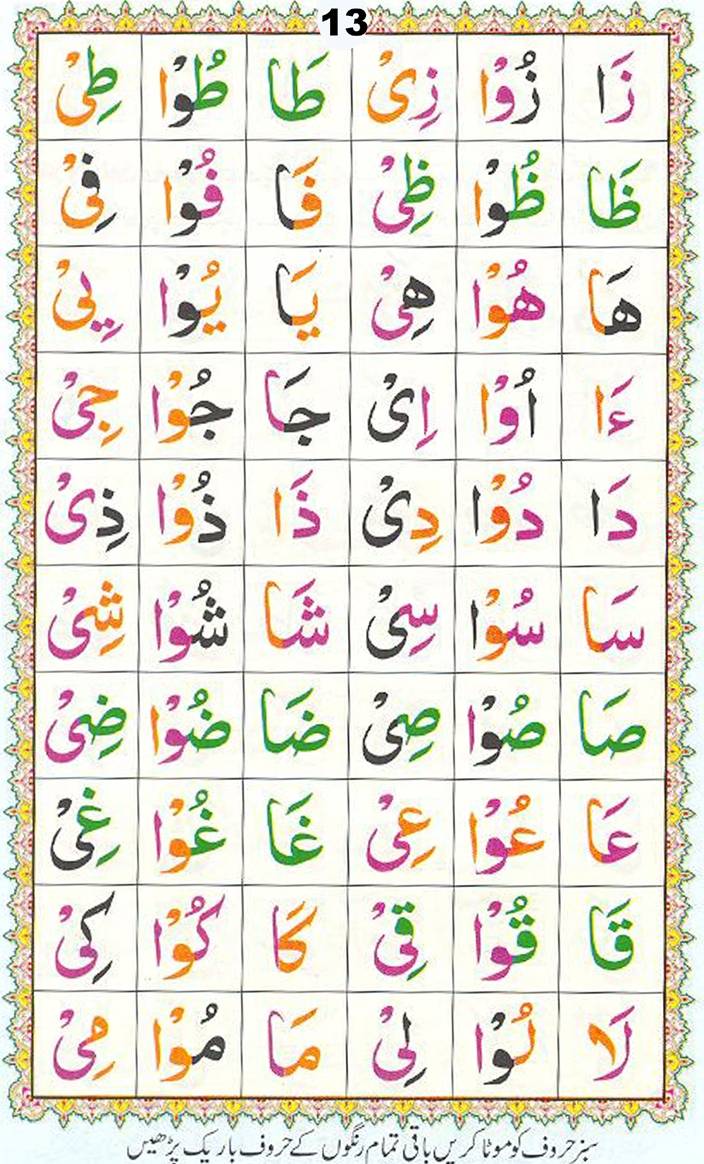 13
زَا زُوْا زِیْ طَا طُوْا طِیْ
ظَا ظُوْا ظِیْ فَا فُوْا فِیْ
هَا هُوْا هِیْ يَا يُوْا يِیْ
ءَا اُوْا اِیْ جَا جُوْا جِیْ
دَا دُوْا دِیْ ذَا ذُوْا ذِیْ
سَا سُوْا سِیْ شَا شُوْا شِیْ
صَا صُوْا صِیْ ضَا ضُوْا ضِیْ
عَا عُوْا عِیْ غَا غُوْا غِیْ
قَا قُوْا قِیْ كَا كُوْا كِیْ
لَا لُوْا لِیْ مَا مُوْا مِیْ
سبز حروف کو موٹا کریں باقی تمام رنگوں کے حروف باریک پڑھیں